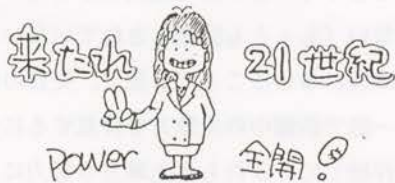 来たれ 21世紀
power 全開!